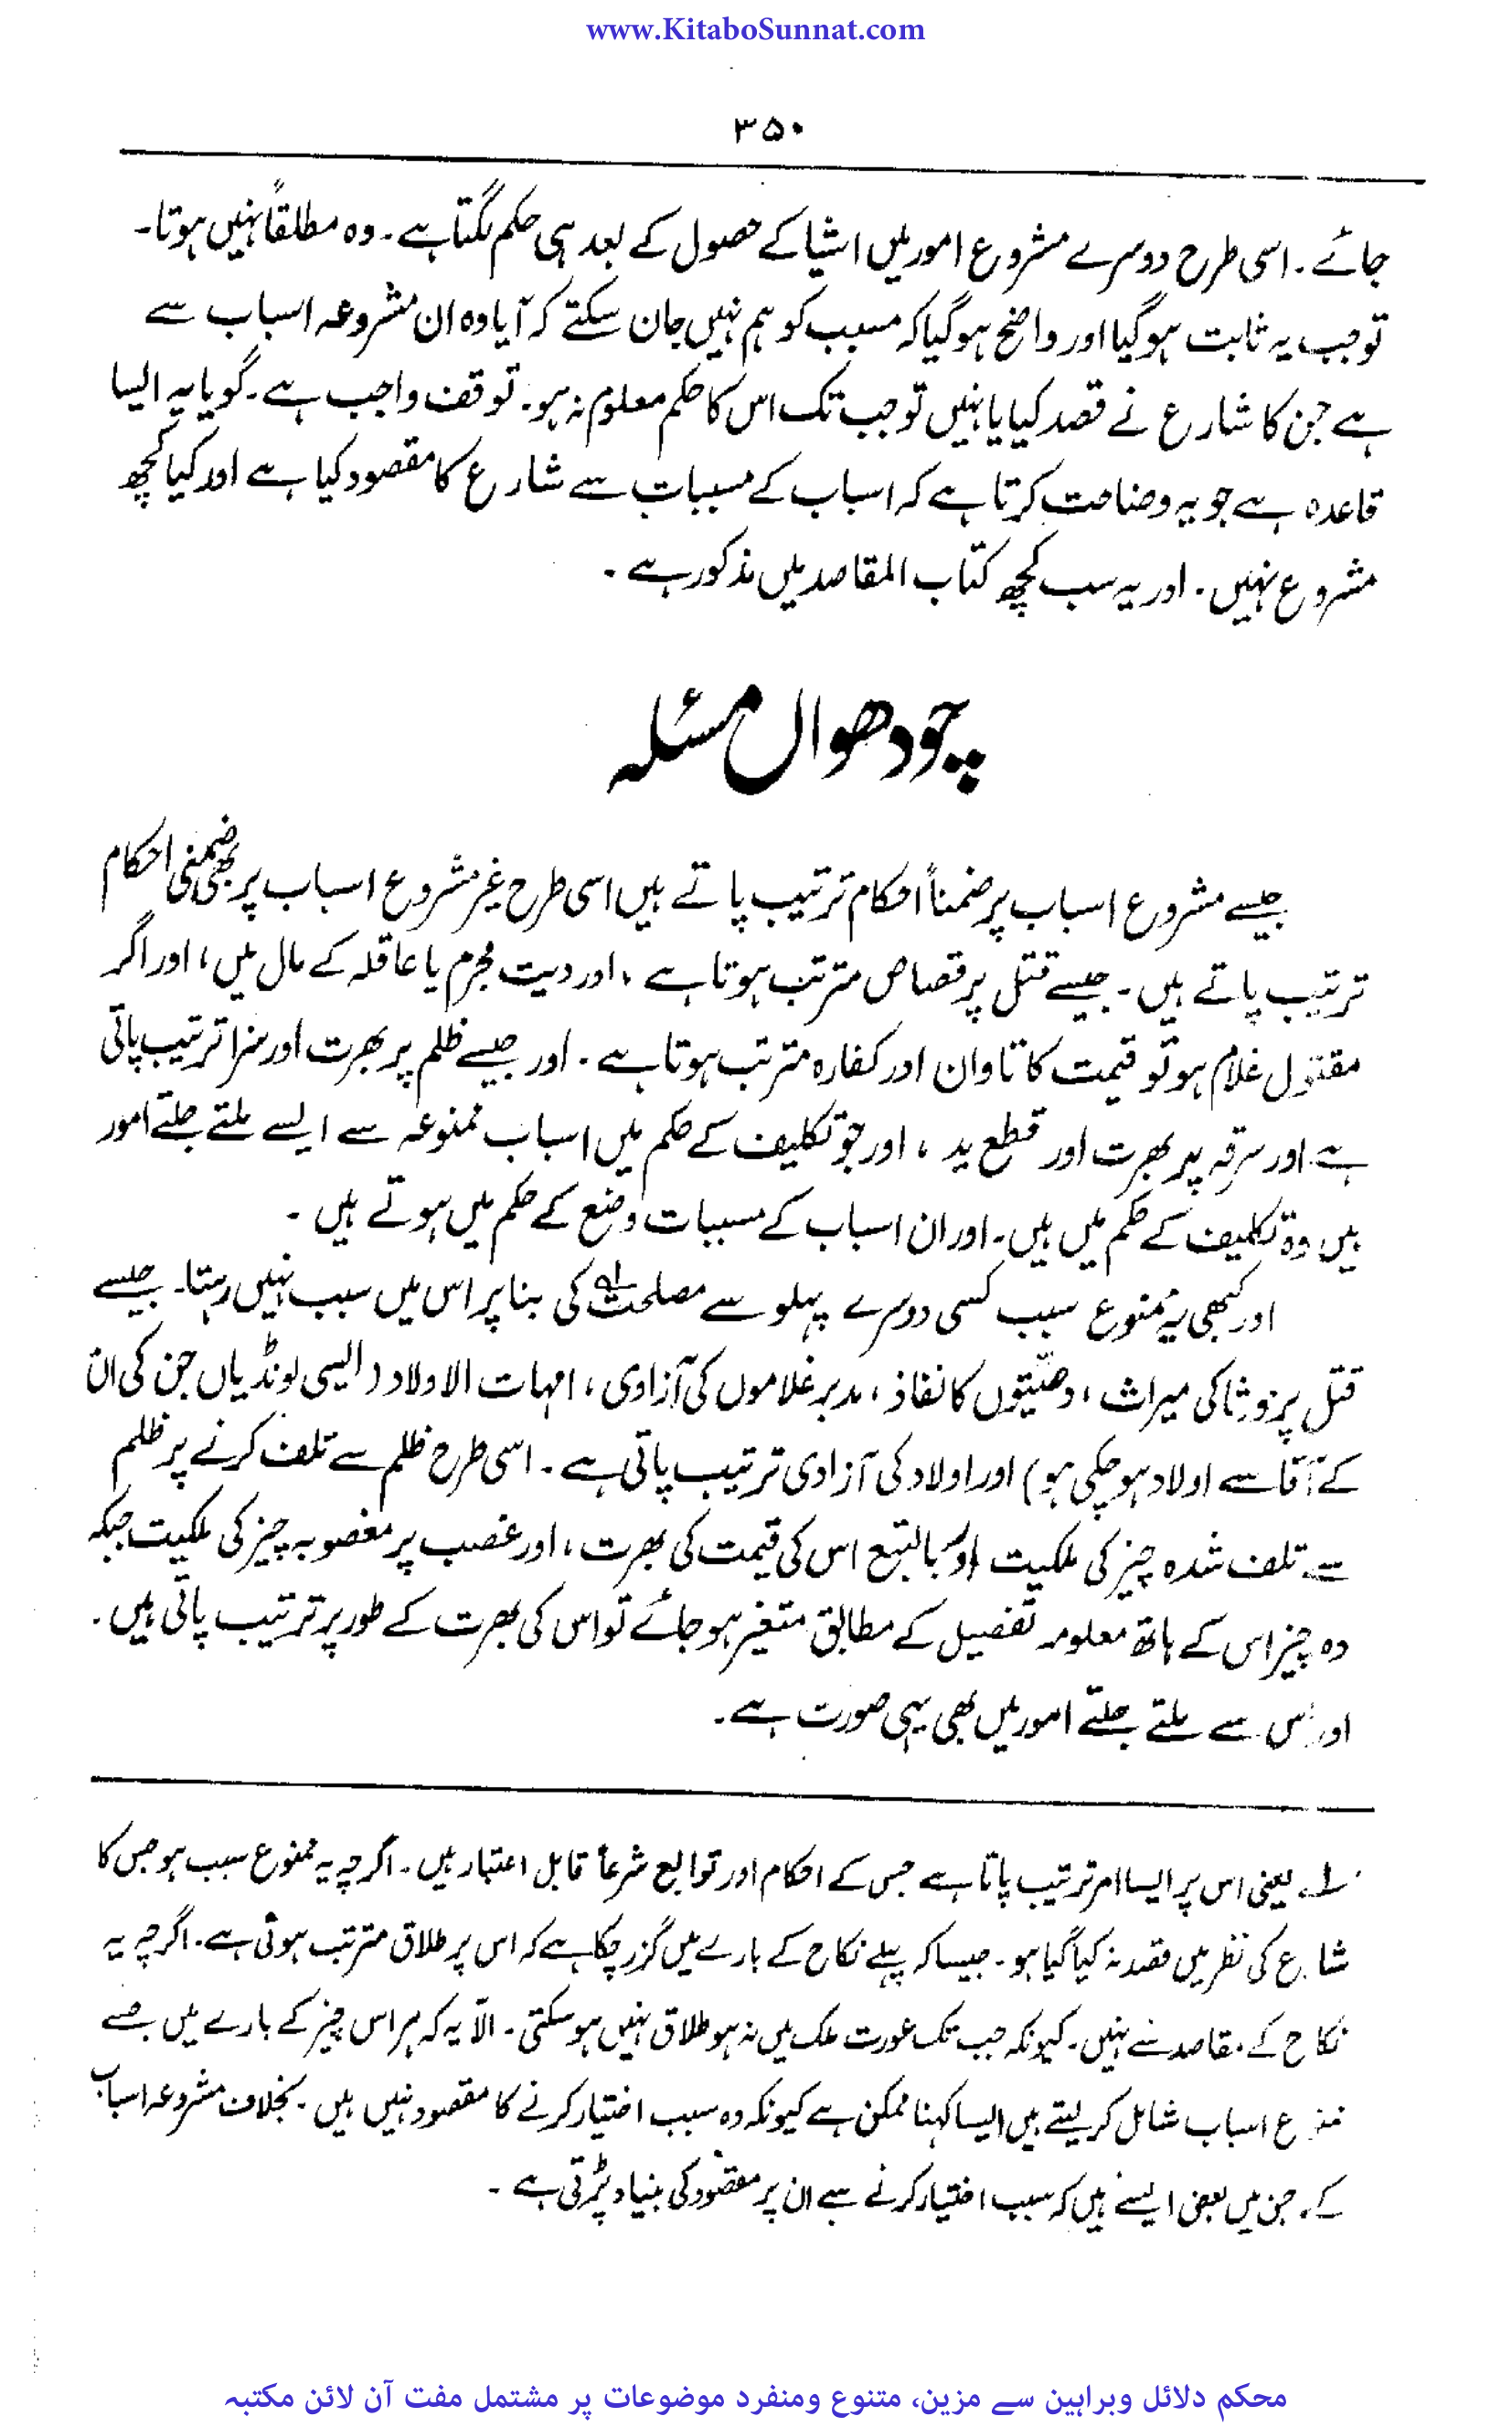 www.KitaboSunnat.com
۳۵۰
جائے۔ اسی طرح دوسرے مشروع امور میں اشیا کے حصول کے بعد ہی حکم لگتا ہے۔ وہ مطلقاً نہیں ہوتا۔
توجب یہ ثابت ہوگیا اور واضح ہوگیا کہ مسبب کو ہم نہیں جان سکتے کہ آیا وہ ان مشروعہ اسباب سے
ہے جن کا شارع نے قصد کیا یا نہیں توجب تک اس کا حکم معلوم نہ ہو۔ توقف واجب ہے۔ گویا یہ ایسا
قاعدہ ہے جو یہ وضاحت کرتا ہے کہ اسباب کے مسببات سے شارع کا مقصود کیا ہے اور کیا کچھ
مشروع نہیں۔ اور یہ سب کچھ کتاب المقاصد میں مذکور ہے۔
چودھواں مسئلہ
جیسے مشروع اسباب پر ضمناً احکام ترتیب پاتے ہیں اسی طرح غیر مشروع اسباب پر بھی ضمنی احکام
ترتیب پاتے ہیں۔ جیسے قتل پر قصاص مترتب ہوتا ہے، اور دیت مجرم یا عاقلہ کے مال میں، اور اگر
مقتول غلام ہو تو قیمت کا تاوان اور کفارہ مترتب ہوتا ہے۔ اور جیسے ظلم پر بھرت اور سزا ترتیب پاتی
ہے اور سرقہ پر بھرت اور قطع ید، اور جو تکلیف کے حکم میں اسباب ممنوعہ سے ایسے ملتے جلتے امور
ہیں وہ تکلیف کے حکم میں ہیں۔ اور ان اسباب کے مسببات وضع کے حکم میں ہوتے ہیں۔
اور کبھی یہ ممنوع سبب کسی دوسرے پہلو سے مصلحت لہ کی بنا پر اس میں سبب نہیں رہتا۔ جیسے
قتل پر ورثا کی میراث، وصیتوں کا نفاذ، مدبر غلاموں کی آزادی، امہات الاولاد (ایسی لونڈیاں جن کی ان
کے آقا سے اولاد ہو چکی ہو) اور اولاد کی آزادی ترتیب پاتی ہے۔ اسی طرح ظلم سے تلف کرنے پر ظلم
سے تلف شدہ چیز کی ملکیت اور بالتبع اس کی قیمت کی بھرت، اور غصب پر مغصوبہ چیز کی ملکیت جبکہ
وہ چیز اس کے ہاتھ معلومہ تفصیل کے مطابق متغیر ہو جائے تو اس کی بھرت کے طور پر ترتیب پاتی ہیں۔
اور اس سے ملتے جلتے امور میں بھی یہی صورت ہے۔
لہ یعنی اس پر ایسا امر ترتیب پاتا ہے جس کے احکام اور توابع شرعاً قابل اعتبار ہیں۔ اگرچہ یہ ممنوع سبب ہو جس کا
شارع کی نظر میں قصد نہ کیا گیا ہو۔ جیسا کہ پہلے نکاح کے بارے میں گزر چکا ہے کہ اس پر طلاق مترتب ہوتی ہے۔ اگرچہ یہ
نکاح کے مقاصد سے نہیں۔ کیونکہ جب تک عورت ملک میں نہ ہو طلاق نہیں ہو سکتی۔ الّا یہ کہ ہر اس چیز کے بارے میں جسے
ممنوع اسباب شامل کر لیتے ہیں ایسا کہنا ممکن ہے کیونکہ وہ سبب اختیار کرنے کا مقصود نہیں ہیں۔ بخلاف مشروعہ اسباب
کے، جن میں بعض ایسے ہیں کہ سبب اختیار کرنے سے ان پر مقصود کی بنیاد پڑتی ہے۔
محکم دلائل وبراہین سے مزین، متنوع ومنفرد موضوعات پر مشتمل مفت آن لائن مکتبہ